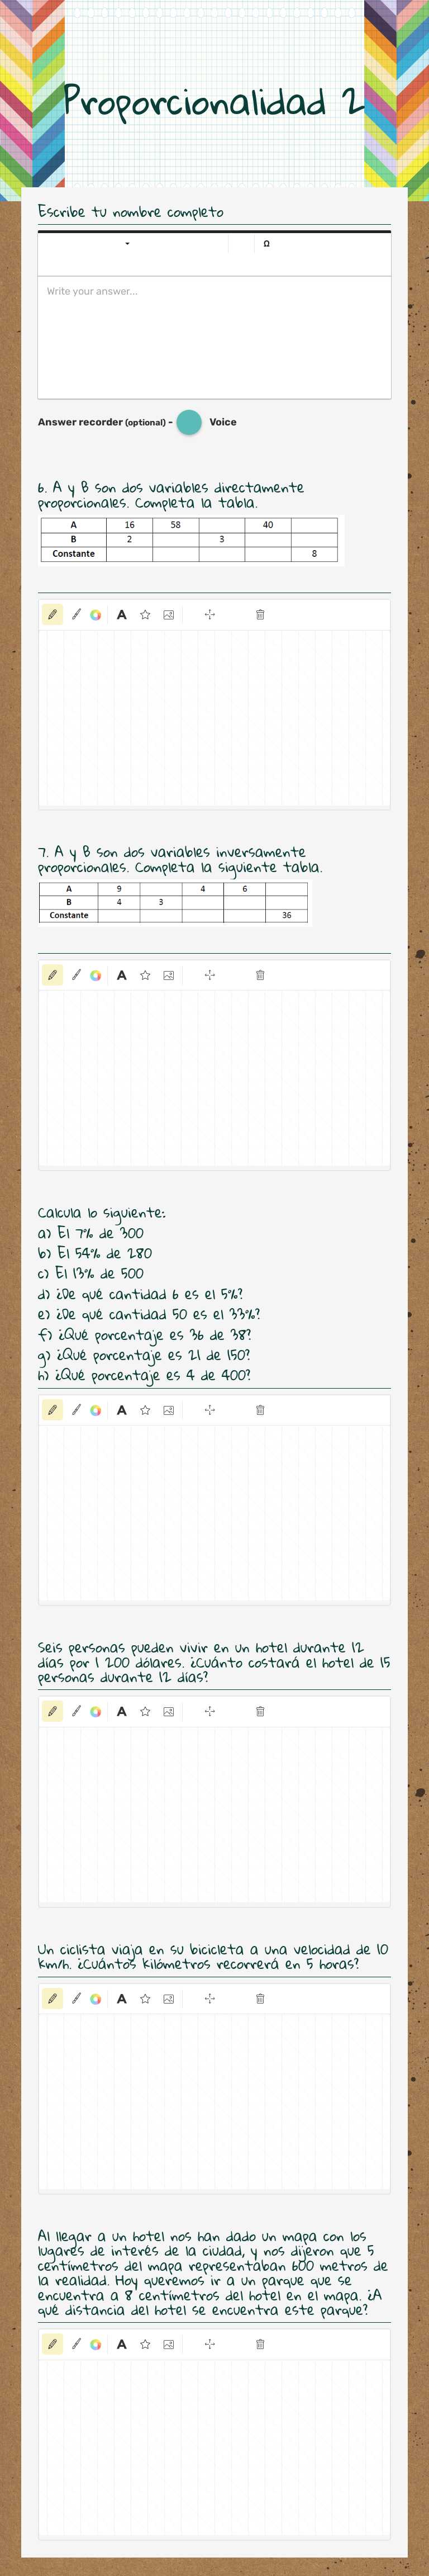 Proporcionalidad 2
Escribe tu nombre completo
Ω
Write your answer...
Answer recorder (optional) - Voice
6. A y B son dos variables directamente
proporcionales. Completa la tabla.
A 16 58 40
B 2 3
Constante 8
A
7. A y B son dos variables inversamente
proporcionales. Completa la siguiente tabla.
A 9 4 6
B 4 3
Constante 36
A
Calcula lo siguiente:
a) El 7% de 300
b) El 54% de 280
c) El 13% de 500
d) ¿De qué cantidad 6 es el 5%?
e) ¿De qué cantidad 50 es el 33%?
f) ¿Qué porcentaje es 36 de 38?
g) ¿Qué porcentaje es 21 de 150?
h) ¿Qué porcentaje es 4 de 400?
A
Seis personas pueden vivir en un hotel durante 12
días por 1 200 dólares. ¿Cuánto costará el hotel de 15
personas durante 12 días?
A
Un ciclista viaja en su bicicleta a una velocidad de 10
km/h. ¿Cuántos kilómetros recorrerá en 5 horas?
A
Al llegar a un hotel nos han dado un mapa con los
lugares de interés de la ciudad, y nos dijeron que 5
centímetros del mapa representaban 600 metros de
la realidad. Hoy queremos ir a un parque que se
encuentra a 8 centímetros del hotel en el mapa. ¿A
qué distancia del hotel se encuentra este parque?
A